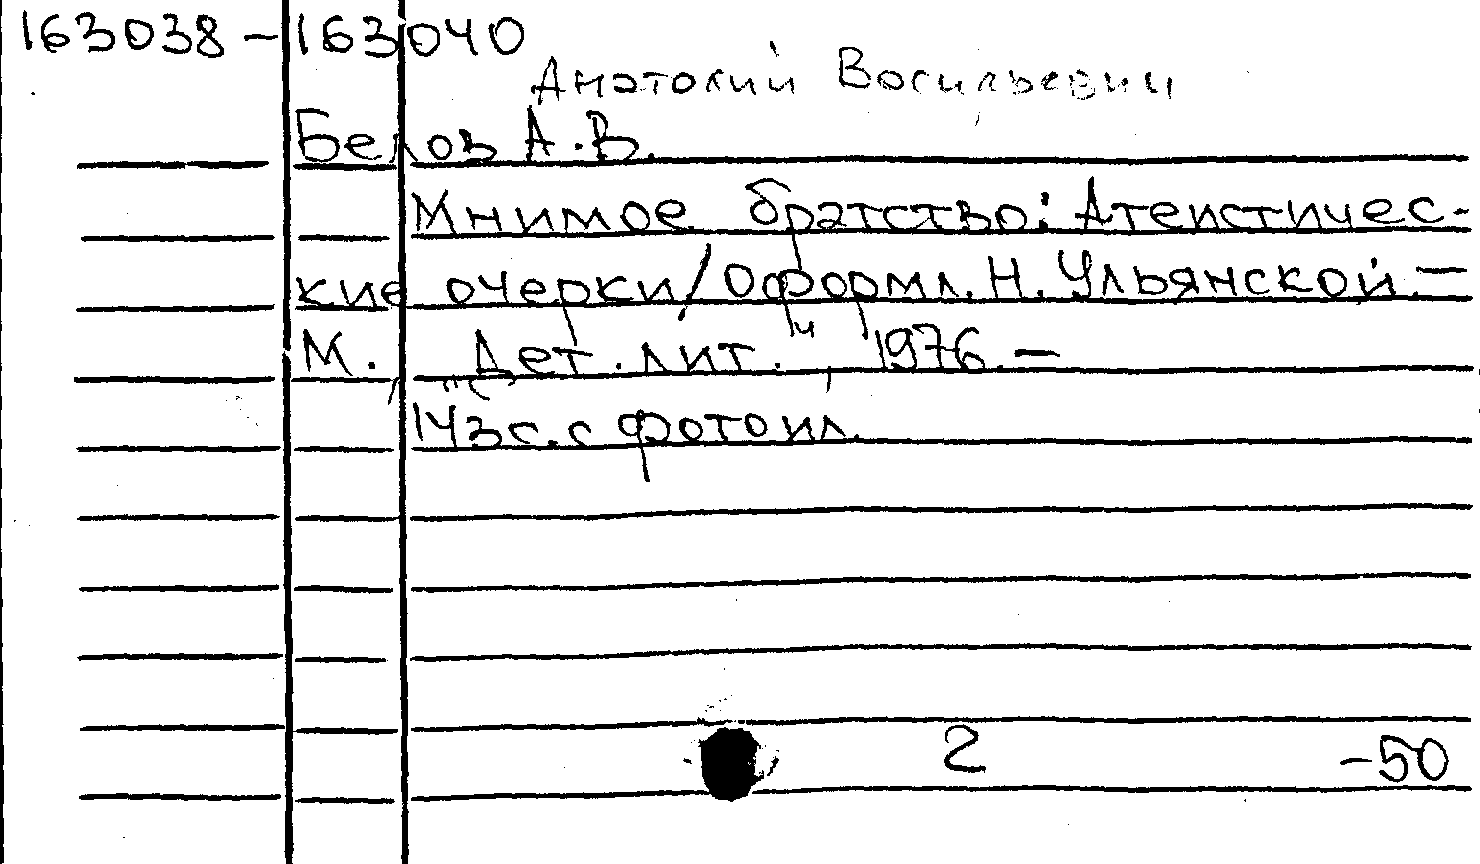 163038-163040
Анатолий Васильевич
Белов А.В.
Мнимое братство: Атеистичес-
кие очерки/Оформл. Н. Ульянской.-
М., "Дет. лит.", 1976.-
143с. с фотоил.
2 -50